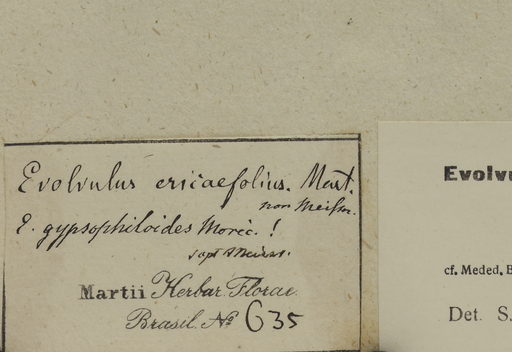 Evolvulus ericaefolius. Mart.
non Meissn.
E. gypsophiloides Moric. !
Martii Herbar. Florae
Brasil. No 635
Evolvu
cf. Meded. B
Det. S.